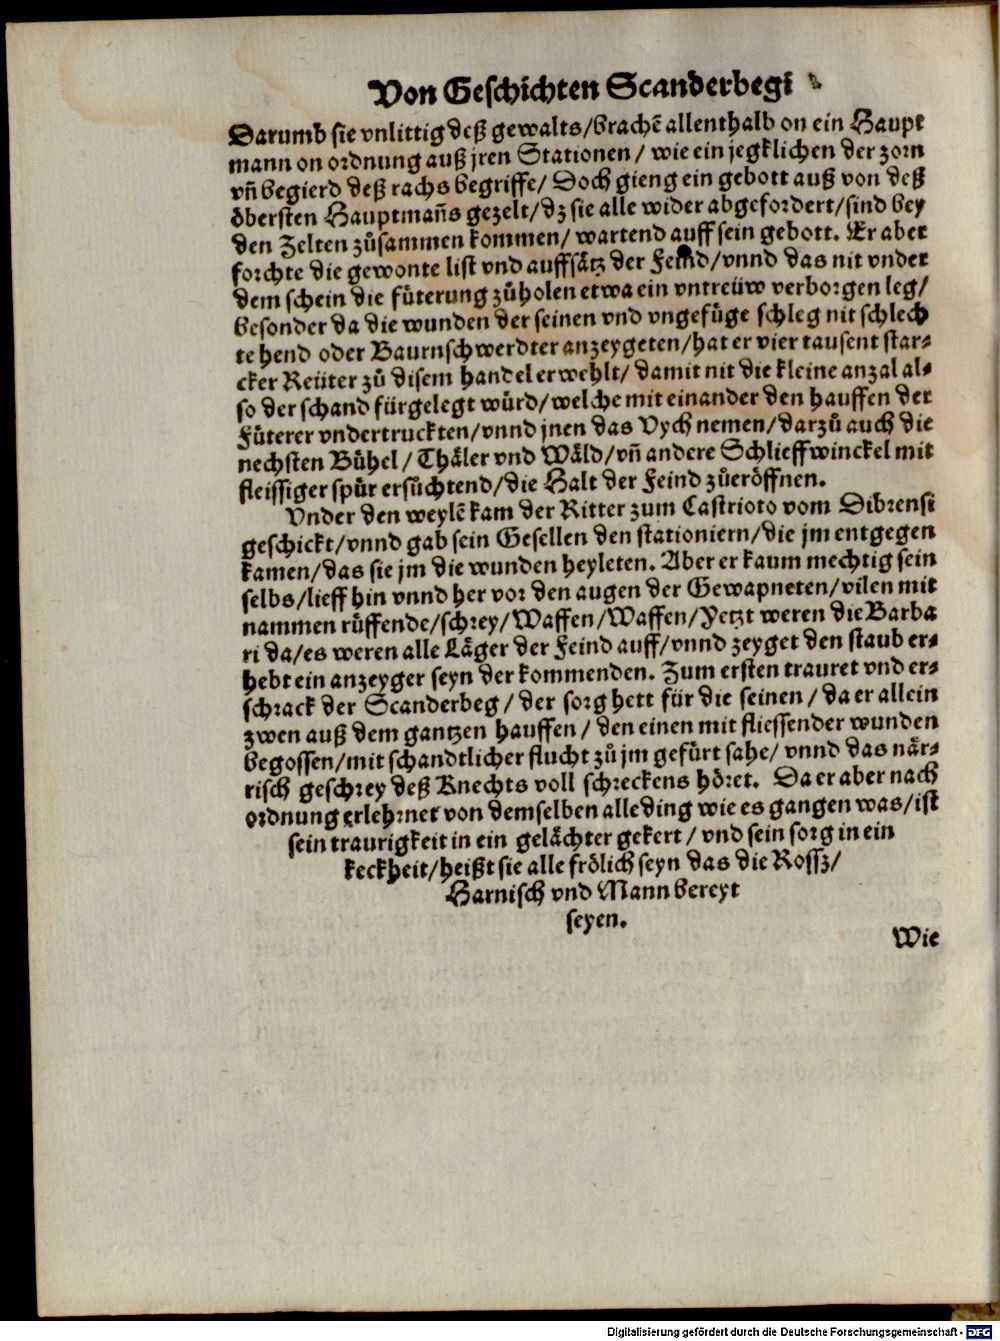 Von Geschichten Scanderbegi
Darumb sie vnlittig deß gewalts/brachē allenthalb on ein Haupt
mann on ordnung auß jren Stationen / wie ein jegklichen der zorn
vñ begierd deß rachs begriffe/ Doch gieng ein gebott auß von deß
öbersten Hauptmañs gezelt/dz sie alle wider abgefordert/sind bey
den Zelten zůsammen kommen/ wartend auff sein gebott. Er aber
forchte die gewonte list vnd auffsätz der Feind/vnnd das nit vnder
dem schein die fůterung zůholen etwa ein vntreüw verborgen leg/
besonder da die wunden der seinen vnd vngefüge schleg nit schlech
te hend oder Baurnschwerdter anzeygeten/hat er vier tausent star⸗
cker Reüter zů disem handel erwehlt/ damit nit die kleine anzal al⸗
so der schand fürgelegt würd/welche mit einander den hauffen der
Fůterer vndertruckten/vnnd jnen das Vych nemen/darzů auch die
nechsten Bühel / Thäler vnd Wäld/vñ andere Schlieffwinckel mit
fleissiger spür ersůchtend/die Halt der Feind zůeröffnen.
Vnder den weylē kam der Ritter zum Castrioto vom Dibrensi
geschickt/vnnd gab sein Gesellen den stationiern/die jm entgegen
kamen/das sie jm die wunden heyleten. Aber er kaum mechtig sein
selbs/lieff hin vnnd her vor den augen der Gewapneten/vilen mit
nammen růffende/schrey/Waffen/Waffen/Yetzt weren die Barba
ri da/es weren alle Läger der Feind auff/vnnd zeyget den staub er⸗
hebt ein anzeyger seyn der kommenden. Zum ersten trauret vnd er⸗
schrack der Scanderbeg / der sorg hett für die seinen / da er allein
zwen auß dem gantzen hauffen / den einen mit fliessender wunden
begossen/mit schandtlicher flucht zů jm gefürt sahe/ vnnd das när⸗
risch geschrey deß Knechts voll schreckens höret. Da er aber nach
ordnung erlehrnet von demselben alle ding wie es gangen was/ist
sein traurigkeit in ein gelächter gekert / vnd sein sorg in ein
keckheit/heißt sie alle frölich seyn das die Rossz/
Harnisch vnd Mann bereyt
seyen.
Wie
Digitalisierung gefördert durch die Deutsche Forschungsgemeinschaft - DFG